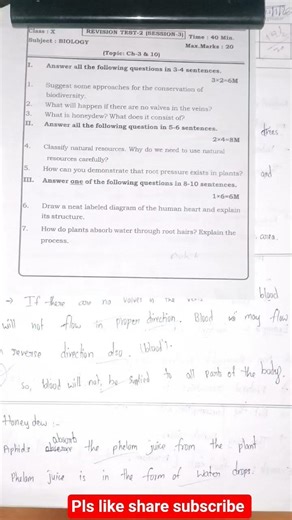 Class : X
REVISION TEST-2 (SESSION-3)
Time : 40 Min.
Subject : BIOLOGY
Max.Marks : 20
(Topic: Ch-3 & 10)
I. Answer all the following questions in 3-4 sentences.
3×2=6M
1. Suggest some approaches for the conservation of
biodiversity.
2. What will happen if there are no valves in the veins?
3. What is honeydew? What does it consist of?
II. Answer all the following question in 5-6 sentences.
2×4=8M
4. Classify natural resources. Why do we need to use natural
resources carefully?
5. How can you demonstrate that root pressure exists in plants?
III. Answer one of the following questions in 8-10 sentences.
1×6=6M
6. Draw a neat labeled diagram of the human heart and explain
its structure.
7. How do plants absorb water through root hairs? Explain the
process.
and
→ If there are no valves in the
blood
will not flow in proper direction. Blood may flow
reverse direction also. (blood).
so, blood will not be to all parts of the body.
Honey dew :-
absorb
Aphids the phelom juice from the plant
Phelom juice is in the form of water drops.
Pls like share subscribe